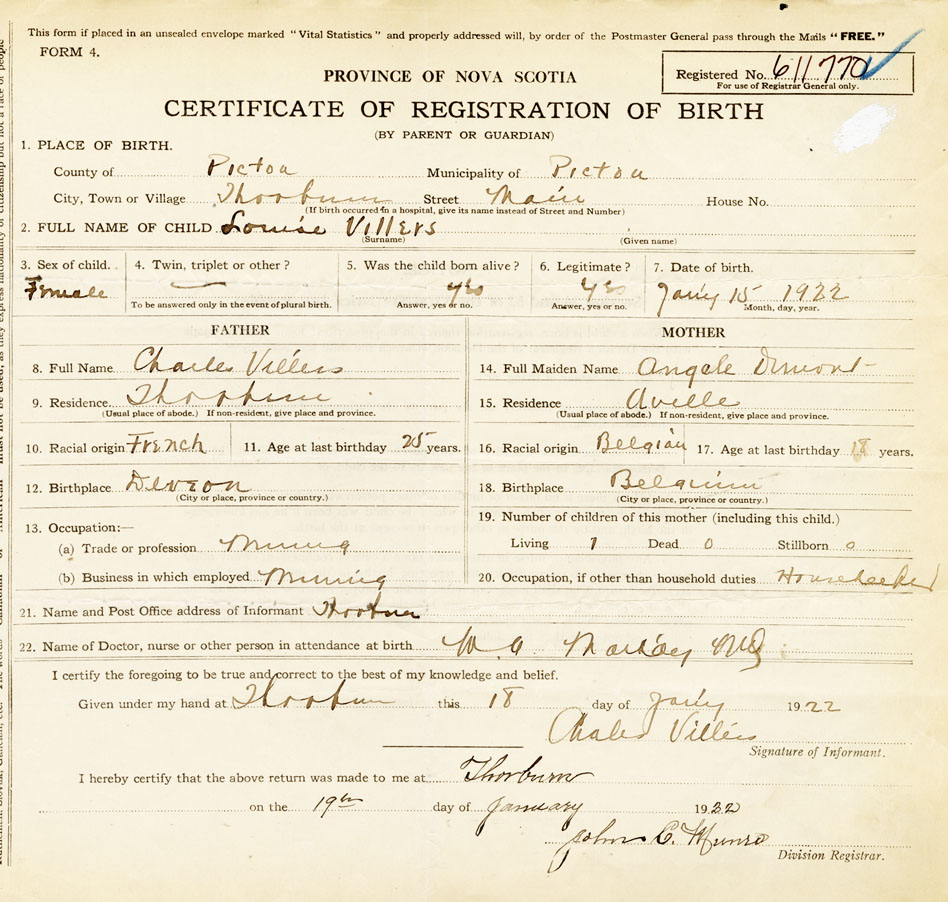 This form if placed in an unsealed envelope marked "Vital Statistics" and properly addressed will, by order of the Postmaster General pass through the Mails "FREE."
FORM 4.
Registered No. 611770
For use of Registrar General only.
PROVINCE OF NOVA SCOTIA
CERTIFICATE OF REGISTRATION OF BIRTH
(BY PARENT OR GUARDIAN)
1. PLACE OF BIRTH.
County of Pictou Municipality of Pictou
City, Town or Village Thorburn Street Main House No.
(If birth occurred in a hospital, give its name instead of Street and Number)
2. FULL NAME OF CHILD Louise Villers
(Surname) (Given name)
3. Sex of child. 4. Twin, triplet or other? 5. Was the child born alive? 6. Legitimate? 7. Date of birth.
Female — yes yes Jan'y 15 1922
To be answered only in the event of plural birth. Answer, yes or no. Answer, yes or no. Month, day, year.
FATHER
8. Full Name Charles Villers
9. Residence Thorburn
(Usual place of abode.) If non-resident, give place and province.
10. Racial origin French 11. Age at last birthday 25 years.
12. Birthplace
(City or place, province or country.)
13. Occupation:—
(a) Trade or profession Mining
(b) Business in which employed Mining
MOTHER
14. Full Maiden Name Angele
15. Residence
(Usual place of abode.) If non-resident, give place and province.
16. Racial origin Belgian 17. Age at last birthday 18 years.
18. Birthplace Belgium
(City or place, province or country.)
19. Number of children of this mother (including this child.)
Living 1 Dead 0 Stillborn 0
20. Occupation, if other than household duties Housekeeper
21. Name and Post Office address of Informant Thorburn
22. Name of Doctor, nurse or other person in attendance at birth
I certify the foregoing to be true and correct to the best of my knowledge and belief.
Given under my hand at Thorburn this 18 day of Jan'y 1922
Charles Villers
Signature of Informant.
I hereby certify that the above return was made to me at Thorburn
on the 19th day of January 1922
John C. Munro
Division Registrar.